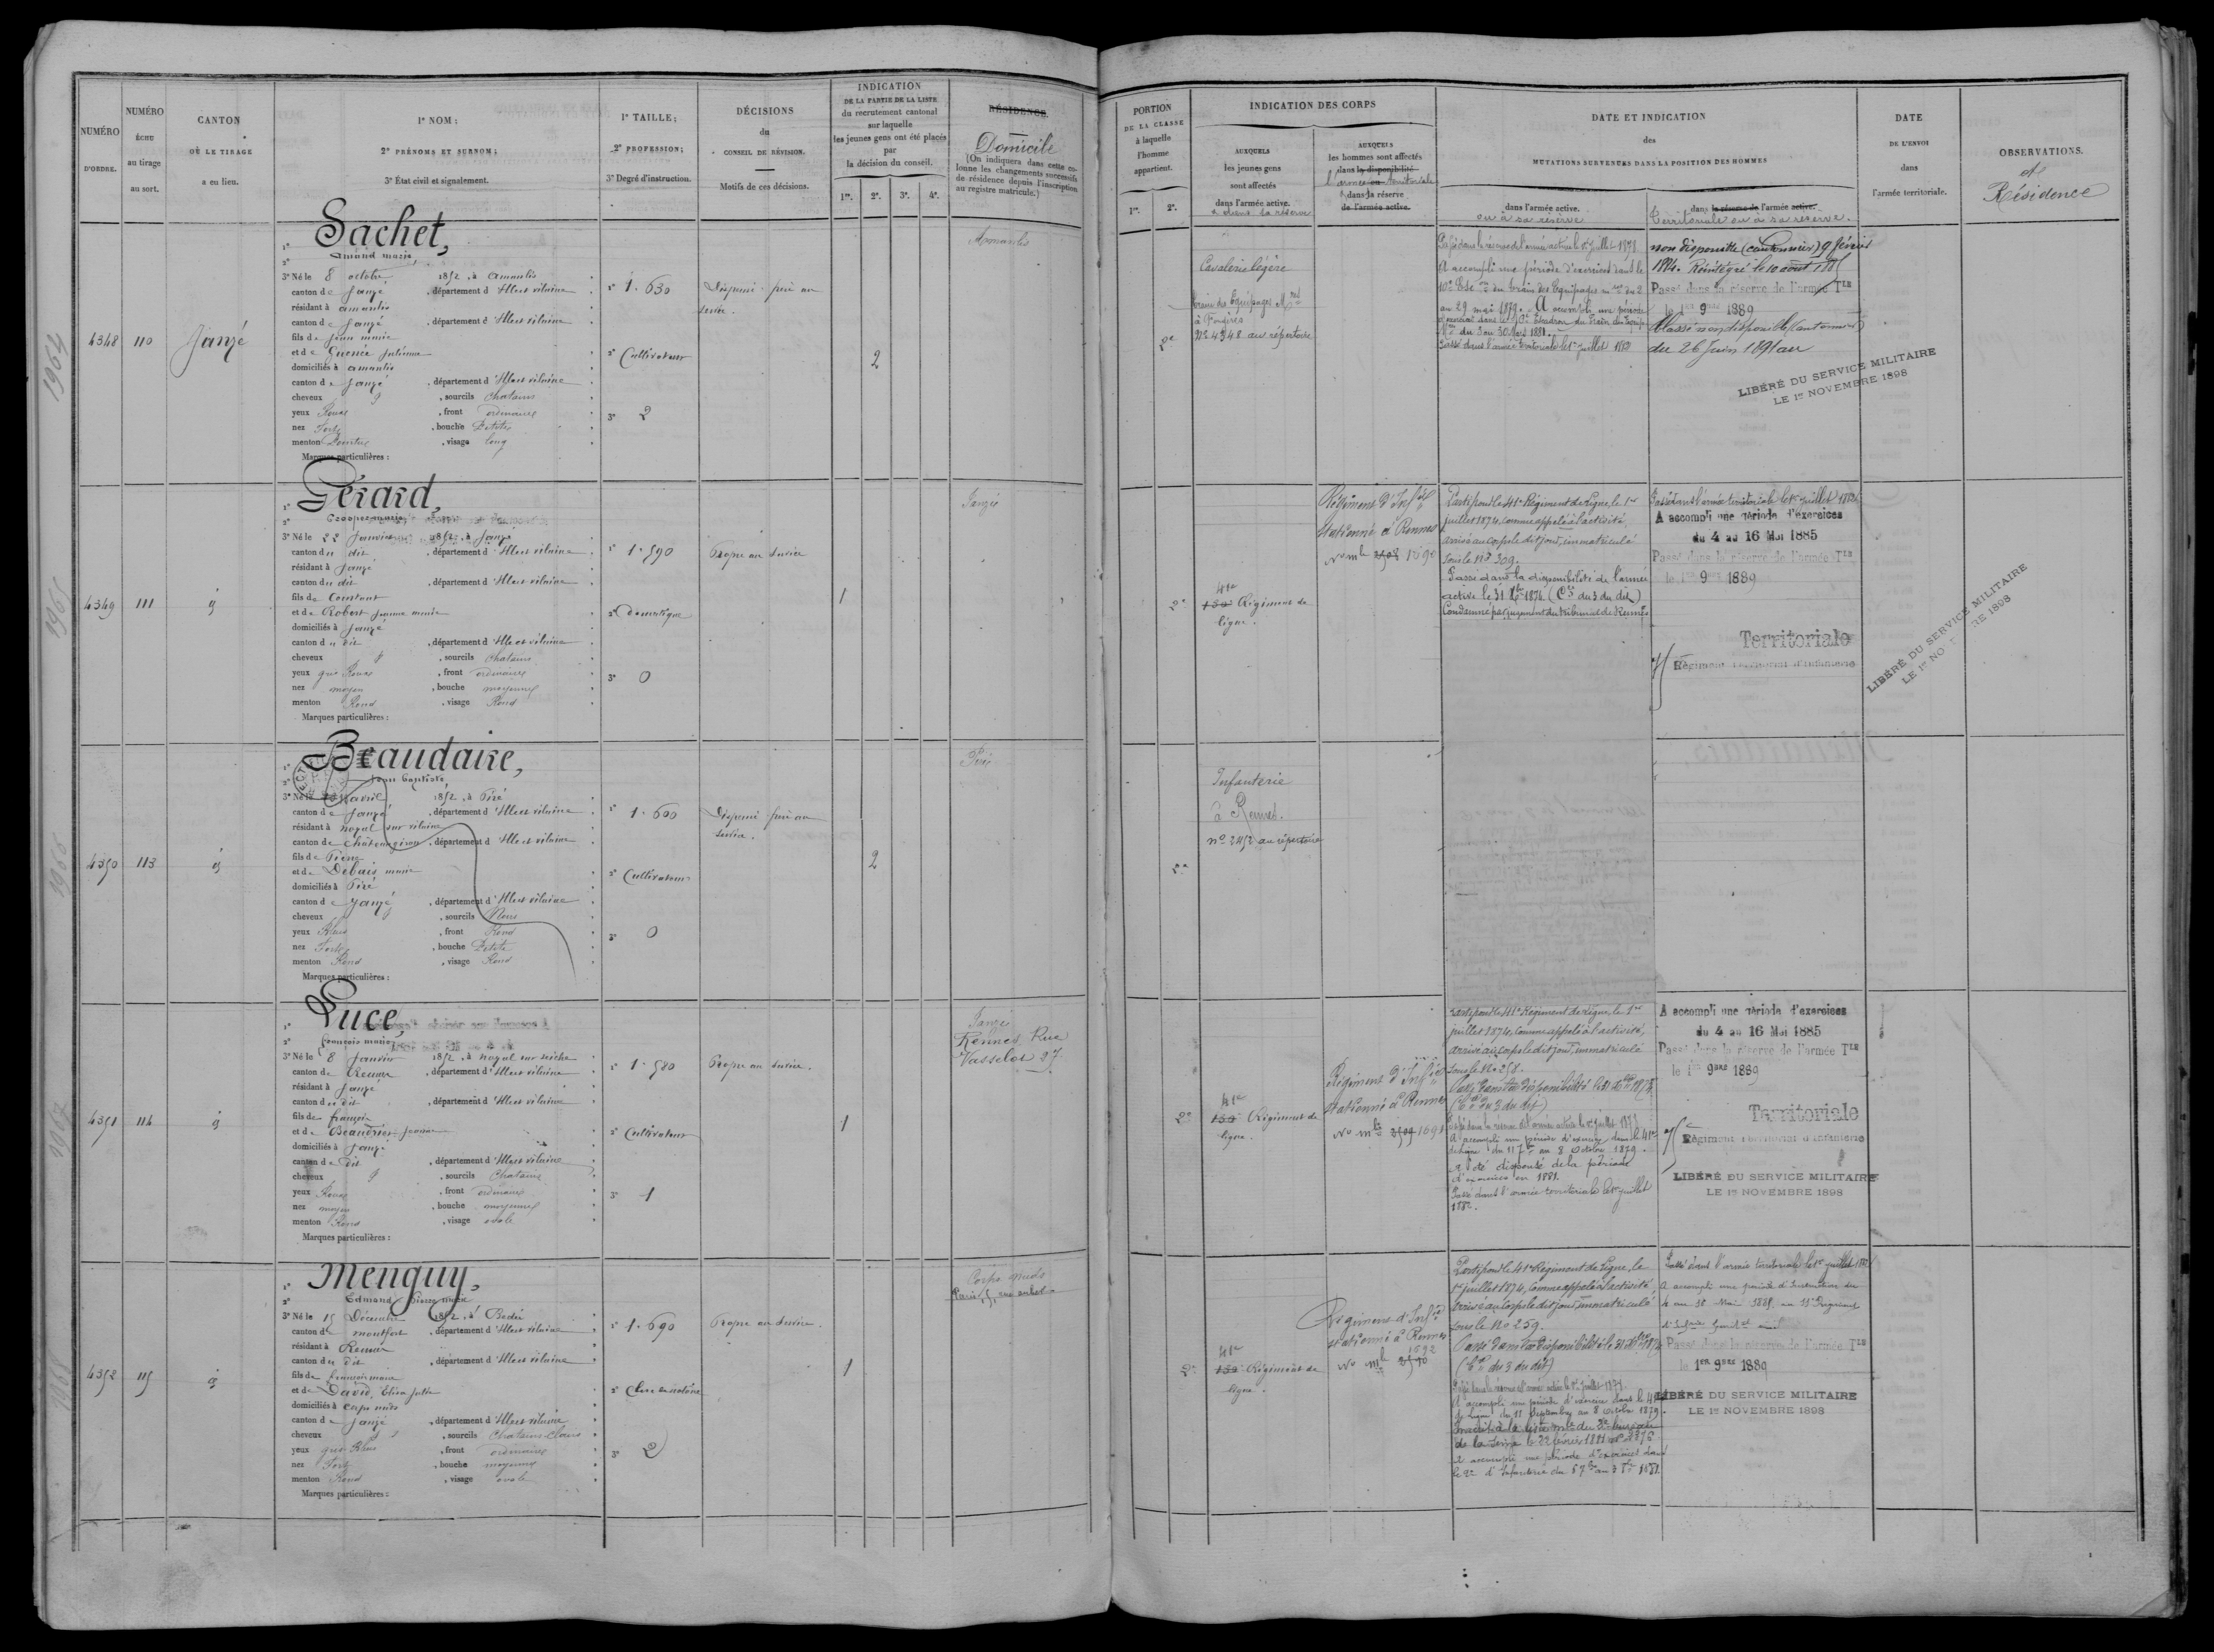 NUMÉRO
D'ORDRE.
NUMÉRO
ÉCHU
au tirage
au sort.
CANTON
OÙ LE TIRAGE
a eu lieu.
1° NOM;
2° PRÉNOMS ET SURNOM;
3° État civil et signalement.
1° TAILLE;
2° PROFESSION;
3° Degré d'instruction.
DÉCISIONS
du
CONSEIL DE RÉVISION.
Motifs de ces décisions.
INDICATION
DE LA PARTIE DE LA LISTE
du recrutement cantonal
sur laquelle
les jeunes gens ont été placés
par
la décision du conseil.
1re. 2e. 3e. 4e.
RÉSIDENCE
Domicile
(On indiquera dans cette co-
lonne les changements successifs
de résidence depuis l'inscription
au registre matricule.)
PORTION
DE LA CLASSE
à laquelle
l'homme
appartient.
1re. 2e.
INDICATION DES CORPS
AUXQUELS
les jeunes gens
sont affectés
dans l'armée active.
& dans sa réserve
AUXQUELS
les hommes sont affectés
dans la disponibilité
l'armée territoriale
& dans la réserve
de l'armée active.
DATE ET INDICATION
des
MUTATIONS SURVENUES DANS LA POSITION DES HOMMES
dans l'armée active.
ou à sa réserve
dans la réserve de l'armée active.
Territoriale ou à sa réserve.
DATE
DE L'ENVOI
dans
l'armée territoriale.
OBSERVATIONS.
et
Résidence
1964
4348 110 Janzé
1° Sachet,
2° Amand marie
3° Né le 8 octobre 1852, à Amanlis
canton de Janzé, département d'Ille et vilaine
résidant à amanlis
canton de Janzé, département d'Ille et vilaine
fils de Jean marie
et de Guenée Julienne
domiciliés à amanlis
canton de Janzé, département d'Ille et vilaine
cheveux g, sourcils Chatains
yeux Roux, front ordinaire
nez Fort, bouche Petite
menton Pointu, visage long
Marques particulières :
1° 1.630
2° Cultivateur
3° 2
Dispensé
service.
2
Amanlis
2e
Cavalerie légère
train des Equipages Mres
à Fougères
No 4348 au répertoire
Passé dans la réserve de l'armée active le 1er juillet 1878
A accompli une période d'exercices dans le
10e Esc. du train des Equipages m. du 2
au 29 mai 1879. A accompli une période
d'exercices dans le 10e Escadron du Train des Equip.
Mres du 3 au 30 Mars 1881.
Passé dans l'armée territoriale le 1er juillet 1882
non disponible (cantonnier) 9 février
1884. Réintégré le 10 août 1885
Passé dans la réserve de l'armée Tle
le 1er 9bre 1889
Classé non disponible (Cantonnier)
du 26 Juin 1891 au
LIBÉRÉ DU SERVICE MILITAIRE
LE 1er NOVEMBRE 1898
1965
4349 111 g
1° Gérard,
2° Prosper marie
3° Né le 22 Janvier 1852, à Janzé
canton du dit, département d'Ille et vilaine
résidant à Janzé
canton du dit, département d'Ille et vilaine
fils de Constant
et de Robert Jeanne marie
domiciliés à Janzé
canton du dit, département d'Ille et vilaine
cheveux g, sourcils Chatains
yeux gris Roux, front ordinaire
nez moyen, bouche moyenne
menton Rond, visage Rond
Marques particulières :
1° 1.590
2° Domestique
3° 0
Propre au service
1
Janzé
2e
41e
130e Régiment de
ligne.
Régiment d'Infie
stationné à Rennes
No mle 2508 1690
Parti pour le 41e Régiment de Ligne, le 1er
juillet 1874, comme appelé à l'activité,
arrivé au corps le dit jour, immatriculé
sous le No 309.
Passé dans la disponibilité de l'armée
active le 31 Xbre 1874 (Con du 3 du dit)
Condamné par jugement du tribunal de Rennes
Passé dans l'armée territoriale le 1er juillet 1882
A accompli une période d'exercices
du 4 au 16 Mai 1885
Passé dans la réserve de l'armée Tle
le 1er 9bre 1889
Territoriale
75 Régiment Territorial d'Infanterie
LIBÉRÉ DU SERVICE MILITAIRE
LE 1er NO RE 1898
1966
4350 113 g
1° Beaudaire,
2° Jean Baptiste
3° Né le avril 1852, à Piré
canton de Janzé, département d'Ille et vilaine
résidant à noyal sur vilaine
canton de Châteaugiron, département d'Ille et vilaine
fils de Pierre
et de Debais marie
domiciliés à Piré
canton de Janzé, département d'Ille et vilaine
cheveux g, sourcils Noirs
yeux Bleus, front Rond
nez Fort, bouche Petite
menton Rond, visage Rond
Marques particulières :
1° 1.600
2° Cultivateur
3° 0
Dispensé
service.
2
Piré
2e
Infanterie
à Rennes.
no 2452 au répertoire
1967
4351 114 g
1° Luce,
2° François marie
3° Né le 8 Janvier 1852, à noyal sur seiche
canton de Rennes, département d'Ille et vilaine
résidant à Janzé
canton du dit, département d'Ille et vilaine
fils de françois
et de Beaudrier Jeanne
domiciliés à Janzé
canton du dit, département d'Ille et vilaine
cheveux g, sourcils Chatains
yeux Roux, front ordinaire
nez moyen, bouche moyenne
menton Rond, visage ovale
Marques particulières :
1° 1.580
2° Cultivateur
3° 1
Propre au service.
1
Janzé
Rennes Rue
Vasselot 27.
2e
41e
130e Régiment de
ligne.
Régiment d'Infie
stationné à Rennes
No mle 2509 1691
Parti pour le 41e Régiment de Ligne, le 1er
juillet 1874, comme appelé à l'activité,
arrivé au corps le dit jour, immatriculé
sous le No 258.
Passé dans la disponibilité le 31 Xbre 1874
(Con du 3 du dit)
Passé dans la réserve de l'armée active le 1er juillet 1878
A accompli une période d'exercices dans le 41e
de Ligne du 11 7bre au 8 Octobre 1879.
A été dispensé de la période
d'exercices en 1881.
Passé dans l'armée territoriale le 1er juillet
1882.
A accompli une période d'exercices
du 4 au 16 Mai 1885
Passé dans la réserve de l'armée Tle
le 1er 9bre 1889
Territoriale
75e Régiment Territorial d'Infanterie
LIBÉRÉ DU SERVICE MILITAIRE
LE 1er NOVEMBRE 1898
1968
4352 115 g
1° Menguy,
2° Edmond Pierre marie
3° Né le 15 Décembre 1852, à Bedée
canton de montfort, département d'Ille et vilaine
résidant à Rennes
canton du dit, département d'Ille et vilaine
fils de françois marie
et de David, Elisa Julie
domiciliés à corps nuds
canton de Janzé, département d'Ille et vilaine
cheveux g, sourcils Chatains clairs
yeux gris Bleus, front ordinaire
nez Fort, bouche moyenne
menton Rond, visage ovale
Marques particulières :
1° 1.690
2° Clerc de notaire
3° 2
Propre au service.
1
Corps nuds
Paris, 5, rue
2e
41e
130e Régiment de
ligne.
Régiment d'Infie
stationné à Rennes
1692
No mle 2510
Parti pour le 41e Régiment de Ligne, le
1er juillet 1874, comme appelé à l'activité,
arrivé au corps le dit jour, immatriculé
sous le No 259.
Passé dans la disponibilité le 31 Xbre 1874
(Con du 3 du dit)
Passé dans la réserve de l'armée active le 1er juillet 1878
A accompli une période d'exercices dans le 41e
de Ligne du 11 Septembre au 8 Octobre 1879.
Inscrit à la liste mle du 3e bureau
de la Seine le 22 février 1881
A accompli une période d'exercices dans
le 2e d'Infanterie du 5 7bre au 3 8bre 1881.
Passé dans l'armée territoriale le 1er juillet 1882
A accompli une période d'instruction du
4 au 16 Mai 1885, au Régiment
Passé dans la réserve de l'armée Tle
le 1er 9bre 1889
LIBÉRÉ DU SERVICE MILITAIRE
LE 1er NOVEMBRE 1898